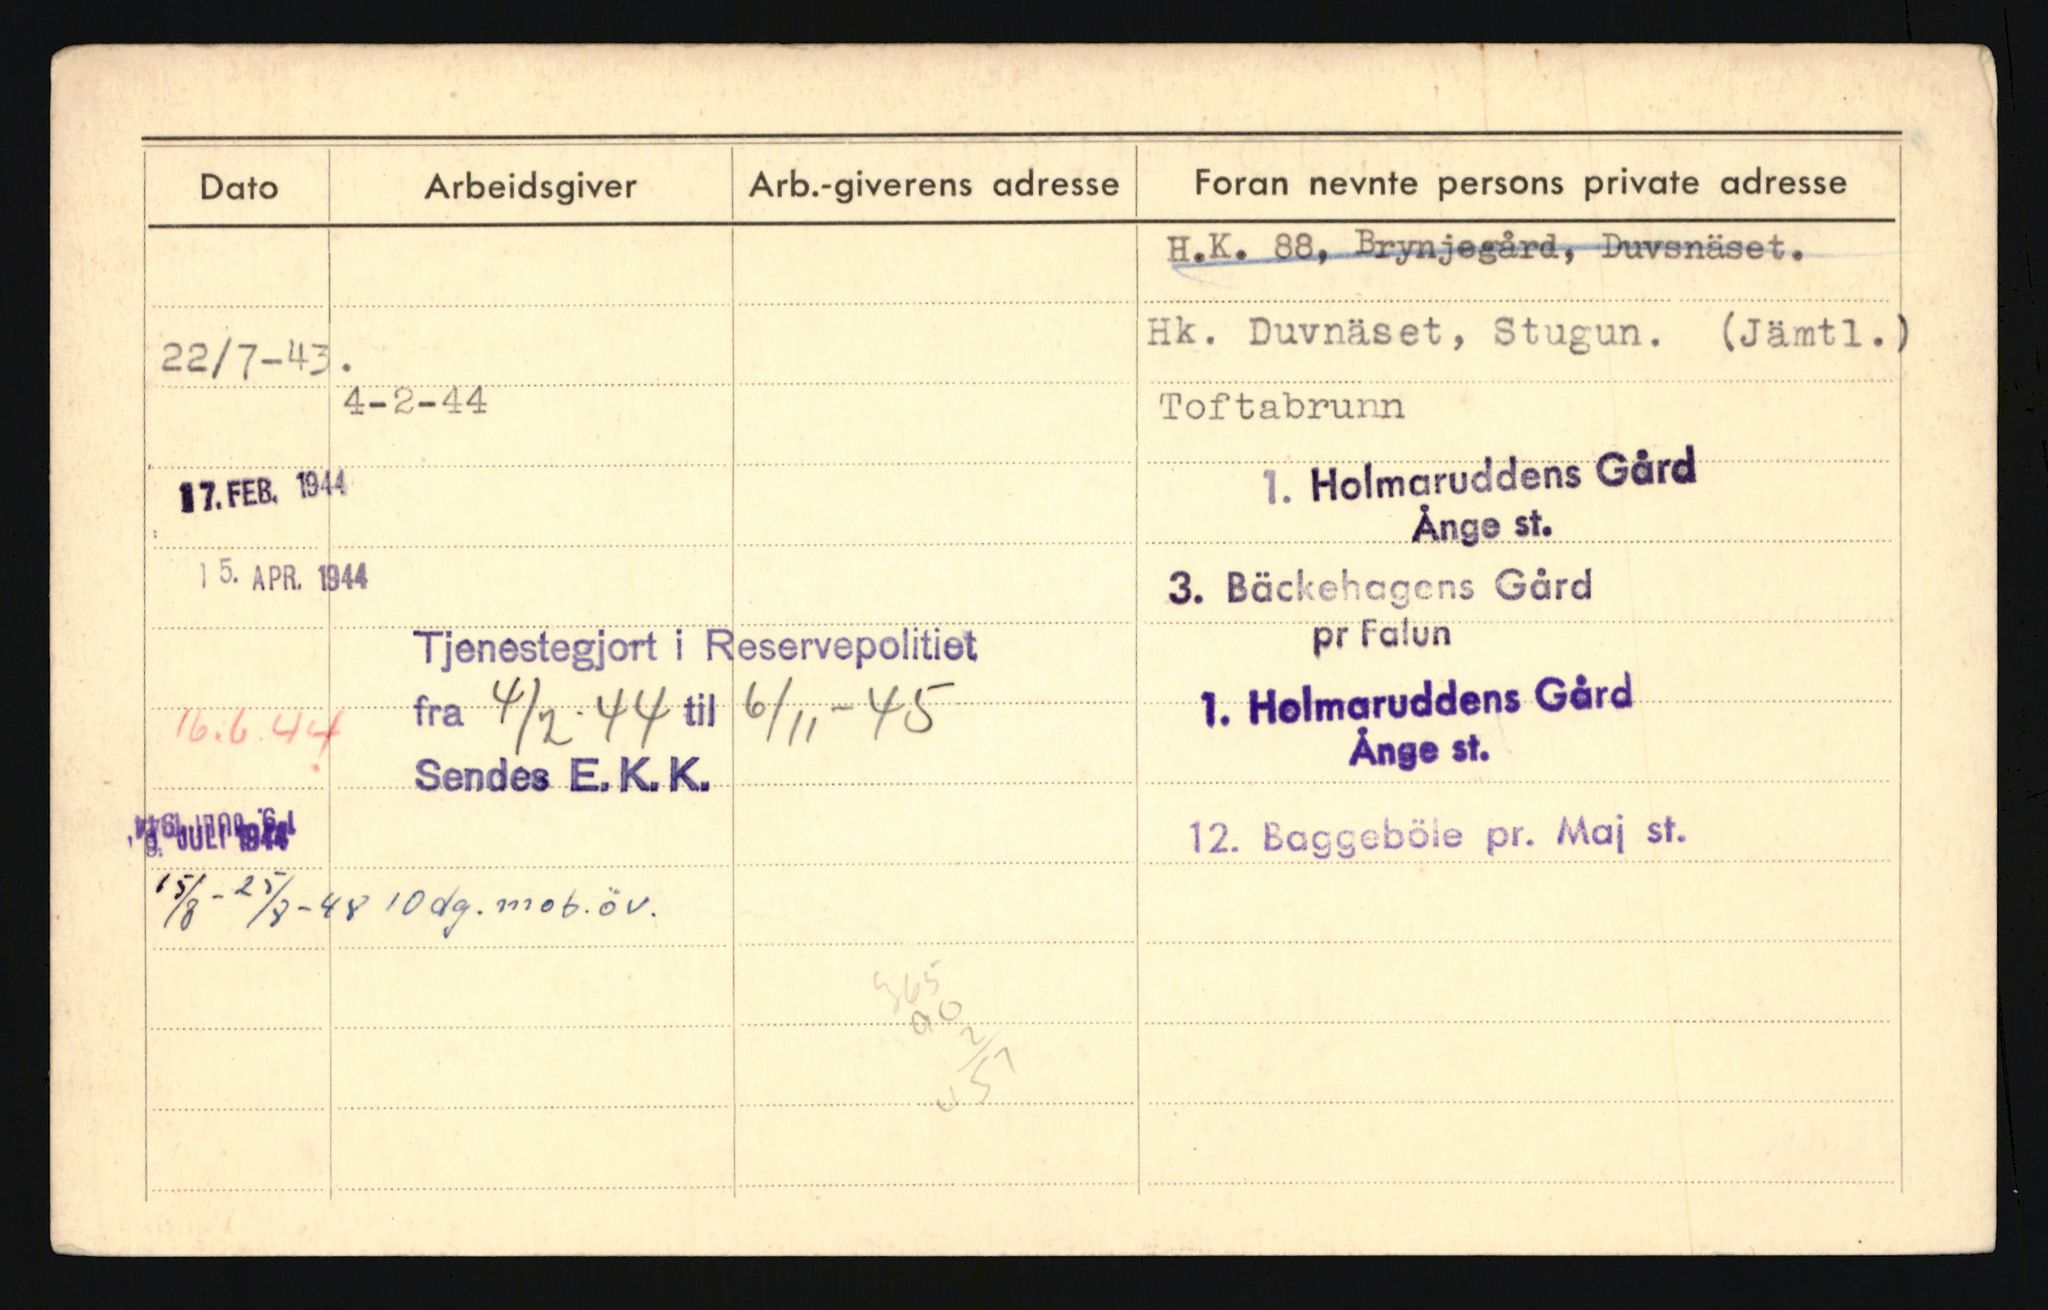 Dato Arbeidsgiver Arb.-giverens adresse Foran nevnte persons private adresse
H.K. 88, Brynjegård, Duvsnäset.
22/7-43. Hk. Duvnäset, Stugun. (Jämtl.)
4-2-44 Toftabrunn
17. FEB. 1944 1. Holmaruddens Gård
Ånge st.
15. APR. 1944 3. Bäckehagens Gård
pr Falun
Tjenestegjort i Reservepolitiet
fra 4/2-44 til 6/11-45 1. Holmaruddens Gård
16.6.44
Ånge st.
Sendes E.K.K.
JULI 1944 12. Baggeböle pr. Maj st.
15/8-25/8-48 10 dg. mob. öv.